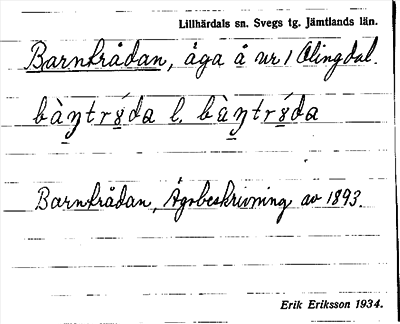 Lillhärdals sn. Svegs tg. Jämtlands län.
Barntrådan, åga å nr 1 Olingdal.
l.
Barntrådan, Ägobeskrivning av 1893.
Erik Eriksson 1934.